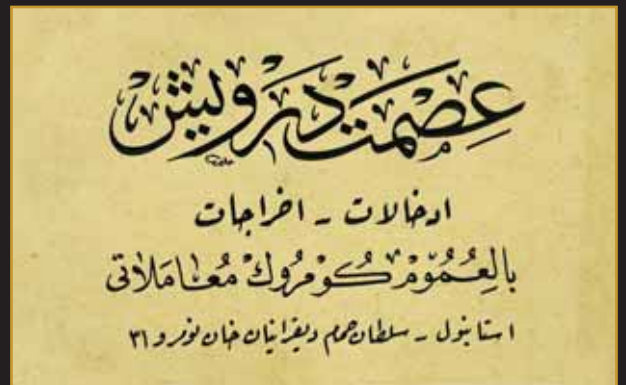 عِصْمَتْ دَرْوِيشْ
ادخالات ـ اخراجات
بِالعُمُومْ كُومْرُوكْ مُعَامَلَاتى
استانبول ـ سلطان حمام ديقرانيان خان نومرو ٣١